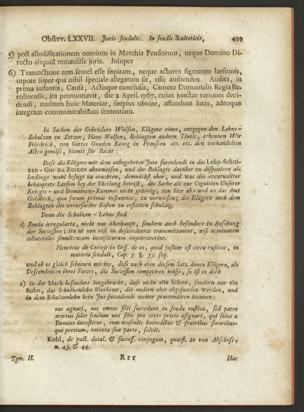 Observ. LXXVII. Juris feudalis. In feudis Scultetiis, 499
5) post allodificationem omnium in Marchia Feudorum, neque Domino Di-
recto aliquid remansisse juris. Insuper
6) Transactione rem semel esse sopitam, neque actores signento laesionis,
utpote super qua nihil speciale allegatum sit, esse audiendos. Audita, in
prima instantia, Causa, Actisque conclusis, Camera Domanialis Regia Be-
rolinensis, ita pronuntiavit, die 2 April. 1767, cujus junctae rationes deci-
dendi, multum huic Materiae, saepius obviae, affundunt lucis, adeoque
integram communicabilius sententiam.
In Sachen der Gebrüdere Wulfen, Klägere eines, entgegen den Lehn-
Schulzen zu Zerzen, Hans Wulfen, Beklagten andern Theils, erkennen Wir
Friedrich, von Gottes Gnaden König in Preussen etc. etc. den vorhandelten
Akten gemäß, hiemit für Recht:
Daß die Klägere mit dem anbegehrten Jure succedendi in das Lehn-Schul-
zen-Gut zu Zerzen abzuweisen, und der Beklagte darüber zu disponiren al-
lerdings wohl befugt zu erachten, demnächst aber, und was die eventualiter
behaupteten Laesion bey der Theilung betrift, die Sache als zur Cognition Unserer
Krieges- und Domainen-Kammer nicht gehörig, von hier ab- und an das Amt
Goldbeck, qua forum primae instantiae, zu verweisen; die Klägere auch dem
Beklagten die verursachte Kosten zu erstatten schuldig.
Denn die Schulzen-Lehne sind
1) Feuda irregularia, nicht nur überhaupt, sondern auch besonders in Ansehung
der Succession, ita ut non nisi in descendentes transmittantur, nisi nominatim
collaterales simultaneam investituram impetraverint.
und ob es gleich scheinen möchte, daß nach eben diesem Satz, denen Klägern, als
Descendenten ihres Vaters, die Succession competiren müsse, so ist es doch
2) in der Mark besonders hergebracht, daß nicht alle Söhne, sondern nur ein
Sohn, das Schulzenlehn überkomt, die andern aber abgefunden werden, und
in dem Schulzenlehn kein Jus succedendi weiter praetendiren können;
nec agnati, nec omnes filii succedunt in feudo rustico, sed patre
mortuo solet feudum uni filio pro certo pretio assignari, qui solus a
Domino investitur, cum masculis haeredibus & fratribus sororibus-
que pretium, retenta sua parte, solvit.
Kohl, de pact. dotal. & success. conjugum, quaest. 20 von Abschoß;
n. 43, & 44.
Tom. II. Rrr Hac